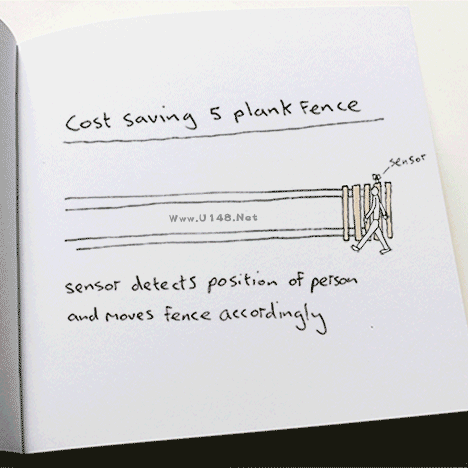 Cost saving 5 plank Fence
sensor
Www.U148.Net
sensor detects position of person
and moves fence accordingly